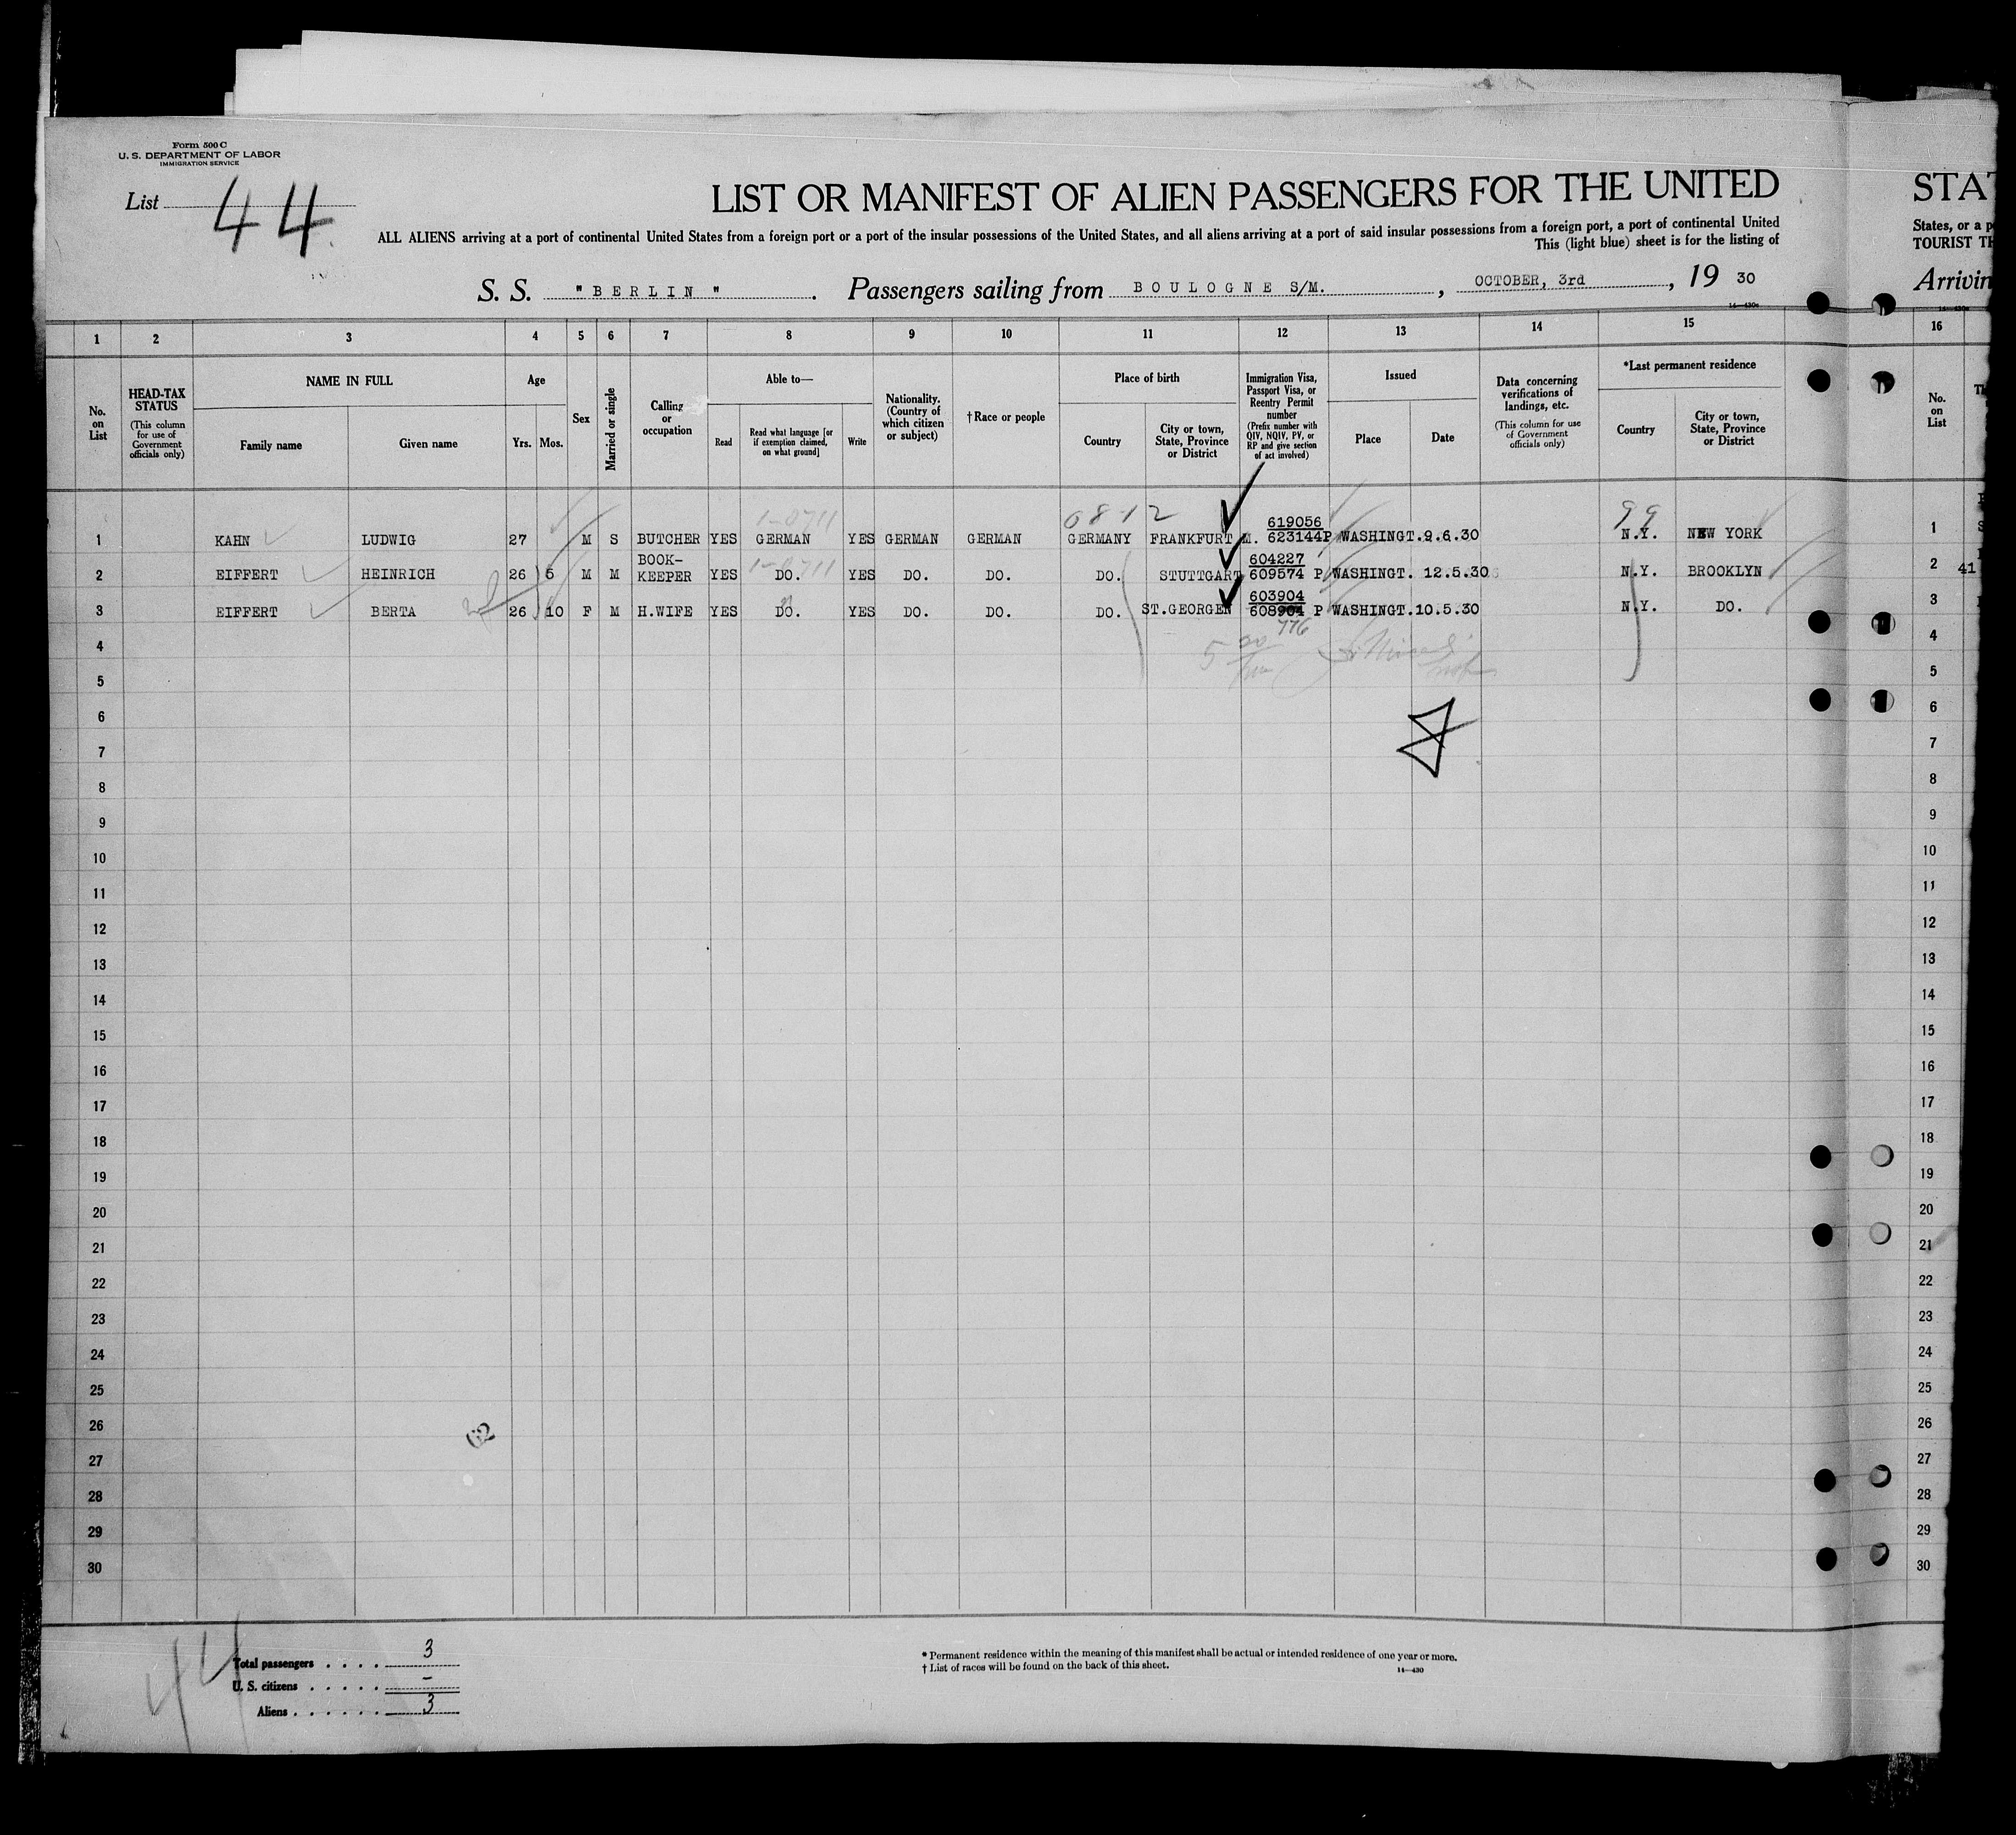 Form 500 C
U. S. DEPARTMENT OF LABOR
IMMIGRATION SERVICE
List 44
LIST OR MANIFEST OF ALIEN PASSENGERS FOR THE UNITED
ALL ALIENS arriving at a port of continental United States from a foreign port or a port of the insular possessions of the United States, and all aliens arriving at a port of said insular possessions from a foreign port, a port of continental United
This (light blue) sheet is for the listing of
S. S. "BERLIN". Passengers sailing from BOULOGNE S/M., OCTOBER, 3rd, 19 30
STA
States, or a p
TOURIST TH
Arrivin
1 2 3 4 5 6 7 8 9 10 11 12 13 14 15 16
No. on List
HEAD-TAX STATUS
(This column for use of Government officials only)
NAME IN FULL
Family name
Given name
Age
Yrs. Mos.
Sex
Married or single
Calling or occupation
Able to—
Read
Read what language [or if exemption claimed, on what ground]
Write
Nationality. (Country of which citizen or subject)
†Race or people
Place of birth
Country
City or town, State, Province or District
Immigration Visa, Passport Visa, or Reentry Permit number
(Prefix number with QIV, NQIV, PV, or RP and give section of act involved)
Issued
Place
Date
Data concerning verifications of landings, etc.
(This column for use of Government officials only)
*Last permanent residence
Country
City or town, State, Province or District
No. on List
1-0711 0812 619056 99
1 KAHN LUDWIG 27 M S BUTCHER YES GERMAN YES GERMAN GERMAN GERMANY FRANKFURT M. 623144P WASHINGT. 9.6.30 N.Y. NEW YORK 1
BOOK- 1-0711 604227
2 EIFFERT HEINRICH 26 5 M M KEEPER YES DO. YES DO. DO. DO. STUTTGART 609574 P WASHINGT. 12.5.30 N.Y. BROOKLYN 2 41
603904
3 EIFFERT BERTA 26 10 F M H.WIFE YES DO. YES DO. DO. DO. ST.GEORGEN 608904 P WASHINGT. 10.5.30 N.Y. DO. 3
776
4 4
5 5
6 6
7 7
8 8
9 9
10 10
11 11
12 12
13 13
14 14
15 15
16 16
17 17
18 18
19 19
20 20
21 21
22 22
23 23
24 24
25 25
26 26
27 27
28 28
29 29
30 30
44
Total passengers . . . . 3
U. S. citizens . . . . . –
Aliens . . . . . . 3
* Permanent residence within the meaning of this manifest shall be actual or intended residence of one year or more.
† List of races will be found on the back of this sheet.
14—430